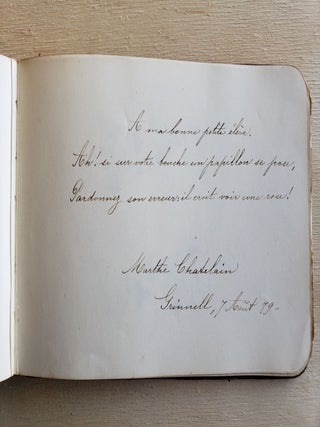 A ma bonne petite élève.
Ah! si sur votre bouche un papillon se pose,
Pardonnez son erreur: il croit voir une rose!
Marthe Chatelain
Grinnell, 7 Août 79-